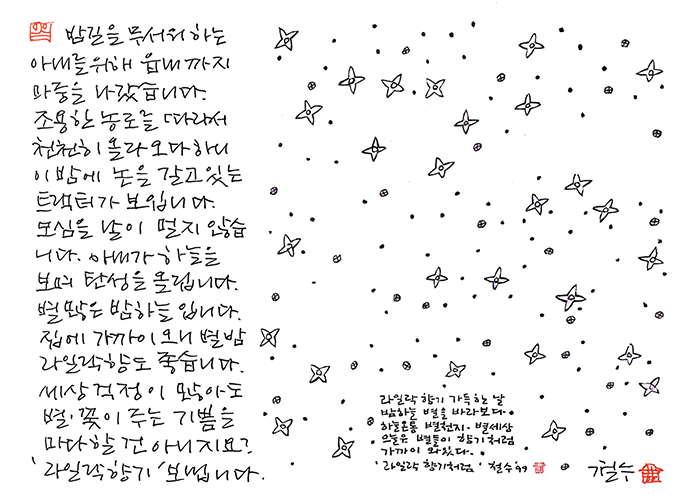 밤길을 무서워 하는
아내를 위해 읍내까지
마중을 나갔습니다.
조용한 농로를 따라서
천천히 올라오다 하니
이 밤에 논을 갈고 있는
트랙터가 보입니다.
모심을 날이 멀지 않습
니다. 아내가 하늘을
보며 탄성을 올립니다.
별 많은 밤하늘 입니다.
집에 가까이 오니 별밤
라일락향도 좋습니다.
세상 걱정이 많아도
별·꽃이 주는 기쁨을
마다할 건 아니지요?
'라일락향기' 보냅니다.
라일락 향기 가득한 날
밤하늘 별을 바라보다.
하늘온통 별천지·별세상
오늘은 별들이 향기처럼
가까이 와있다.
'라일락 향기처럼' 철수 '99
철수